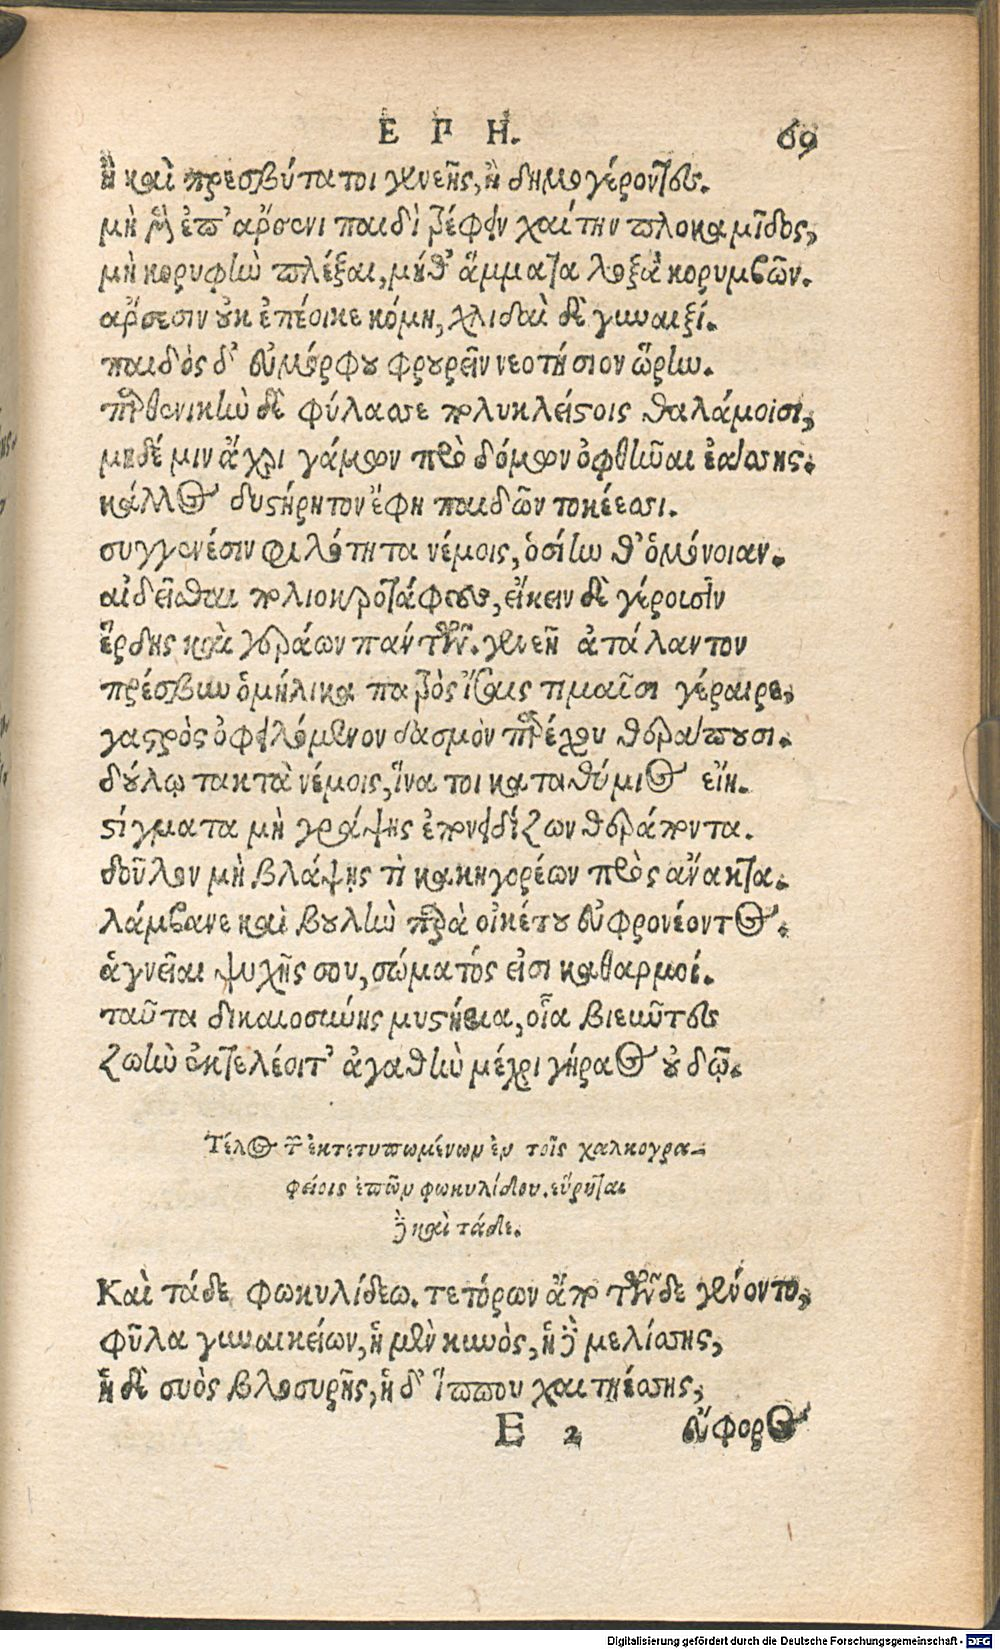 ΕΡΗ. 69
ἢ καὶ πρεσβύτατοι γενεῆς, ἢ δημογέροντες.
μὴ μὲν ἐπ’ ἄῤσενι παιδὶ τρέφειν χαίτην πλοκαμῖδος,
μὴ κορυφὴν πλέξαι, μήθ’ ἅμματα λοξὰ κορυμβῶν.
ἄῤσεσιν οὐκ ἐπέοικε κόμη, χλιδαὶ δὲ γυναιξί.
παιδὸς δ’ εὐμόρφου φρουρεῖν νεοτήσιον ὥρην.
παρθενικὴν δὲ φύλασσε πολυκλείστοις θαλάμοισι,
μηδέ μιν ἄχρι γάμων πρὸ δόμων ὀφθῆναι ἐάσσῃς.
κάλλος δυστήρητον ἔφη παιδῶν τοκέεσσι.
συγγενέσιν φιλότητα νέμοις, ὁσίην θ’ ὁμόνοιαν.
αἰδεῖσθαι πολιοκροτάφους, εἴκειν δὲ γέρουσιν
ἕρδης καὶ γεράων πάντων. γενεῇ ἀτάλαντον
πρέσβυν ὁμήλικα πατρὸς ἴσαις τιμαῖσι γέραιρε,
γαστρὸς ὀφειλόμενον δασμὸν παρέχου θεράπουσι.
δούλῳ τακτὰ νέμοις, ἵνα τοι καταθύμιος εἴη.
στίγματα μὴ γράψῃς ἐπονειδίζων θεράποντα.
δοῦλον μὴ βλάψῃς τὶ κακηγορέων πρὸς ἄνακτα.
λάμβανε καὶ βουλὴν παρὰ οἰκέτου εὐφρονέοντος.
ἁγνεῖαι ψυχῆς σου, σώματός εἰσι καθαρμοί.
ταῦτα δικαιοσύνης μυστήρια, οἷα βιεῦντες
ζωὴν ἐκτελέοιτ’ ἀγαθὴν μέχρι γήραος οὐδῷ.
Τέλος τῶν ἐκτετυπωμένων ἐν τοῖς χαλκογρα-
φείοις ἐπῶν φωκυλίδου. εὕρηται
δὲ καὶ τάδε.
Καὶ τάδε Φωκυλίδεω. τετόρων ἄπο τῶνδε γένοντο,
φῦλα γυναικείων, ἡ μὲν κυνὸς, ἡ δὲ μελίσσης,
ἡ δὲ συὸς βλοσυρῆς, ἡ δ’ ἵππου χαιτηέσσης,
Ε 2 εὔφορος
Digitalisierung gefördert durch die Deutsche Forschungsgemeinschaft - DFG